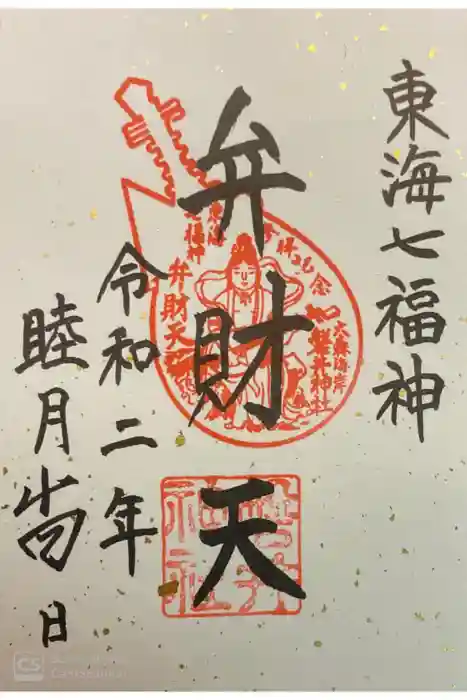 東海七福神
弁財天
令和二年
睦月吉日
弁財天
大森海岸
磐井神社
CS
CamScanner